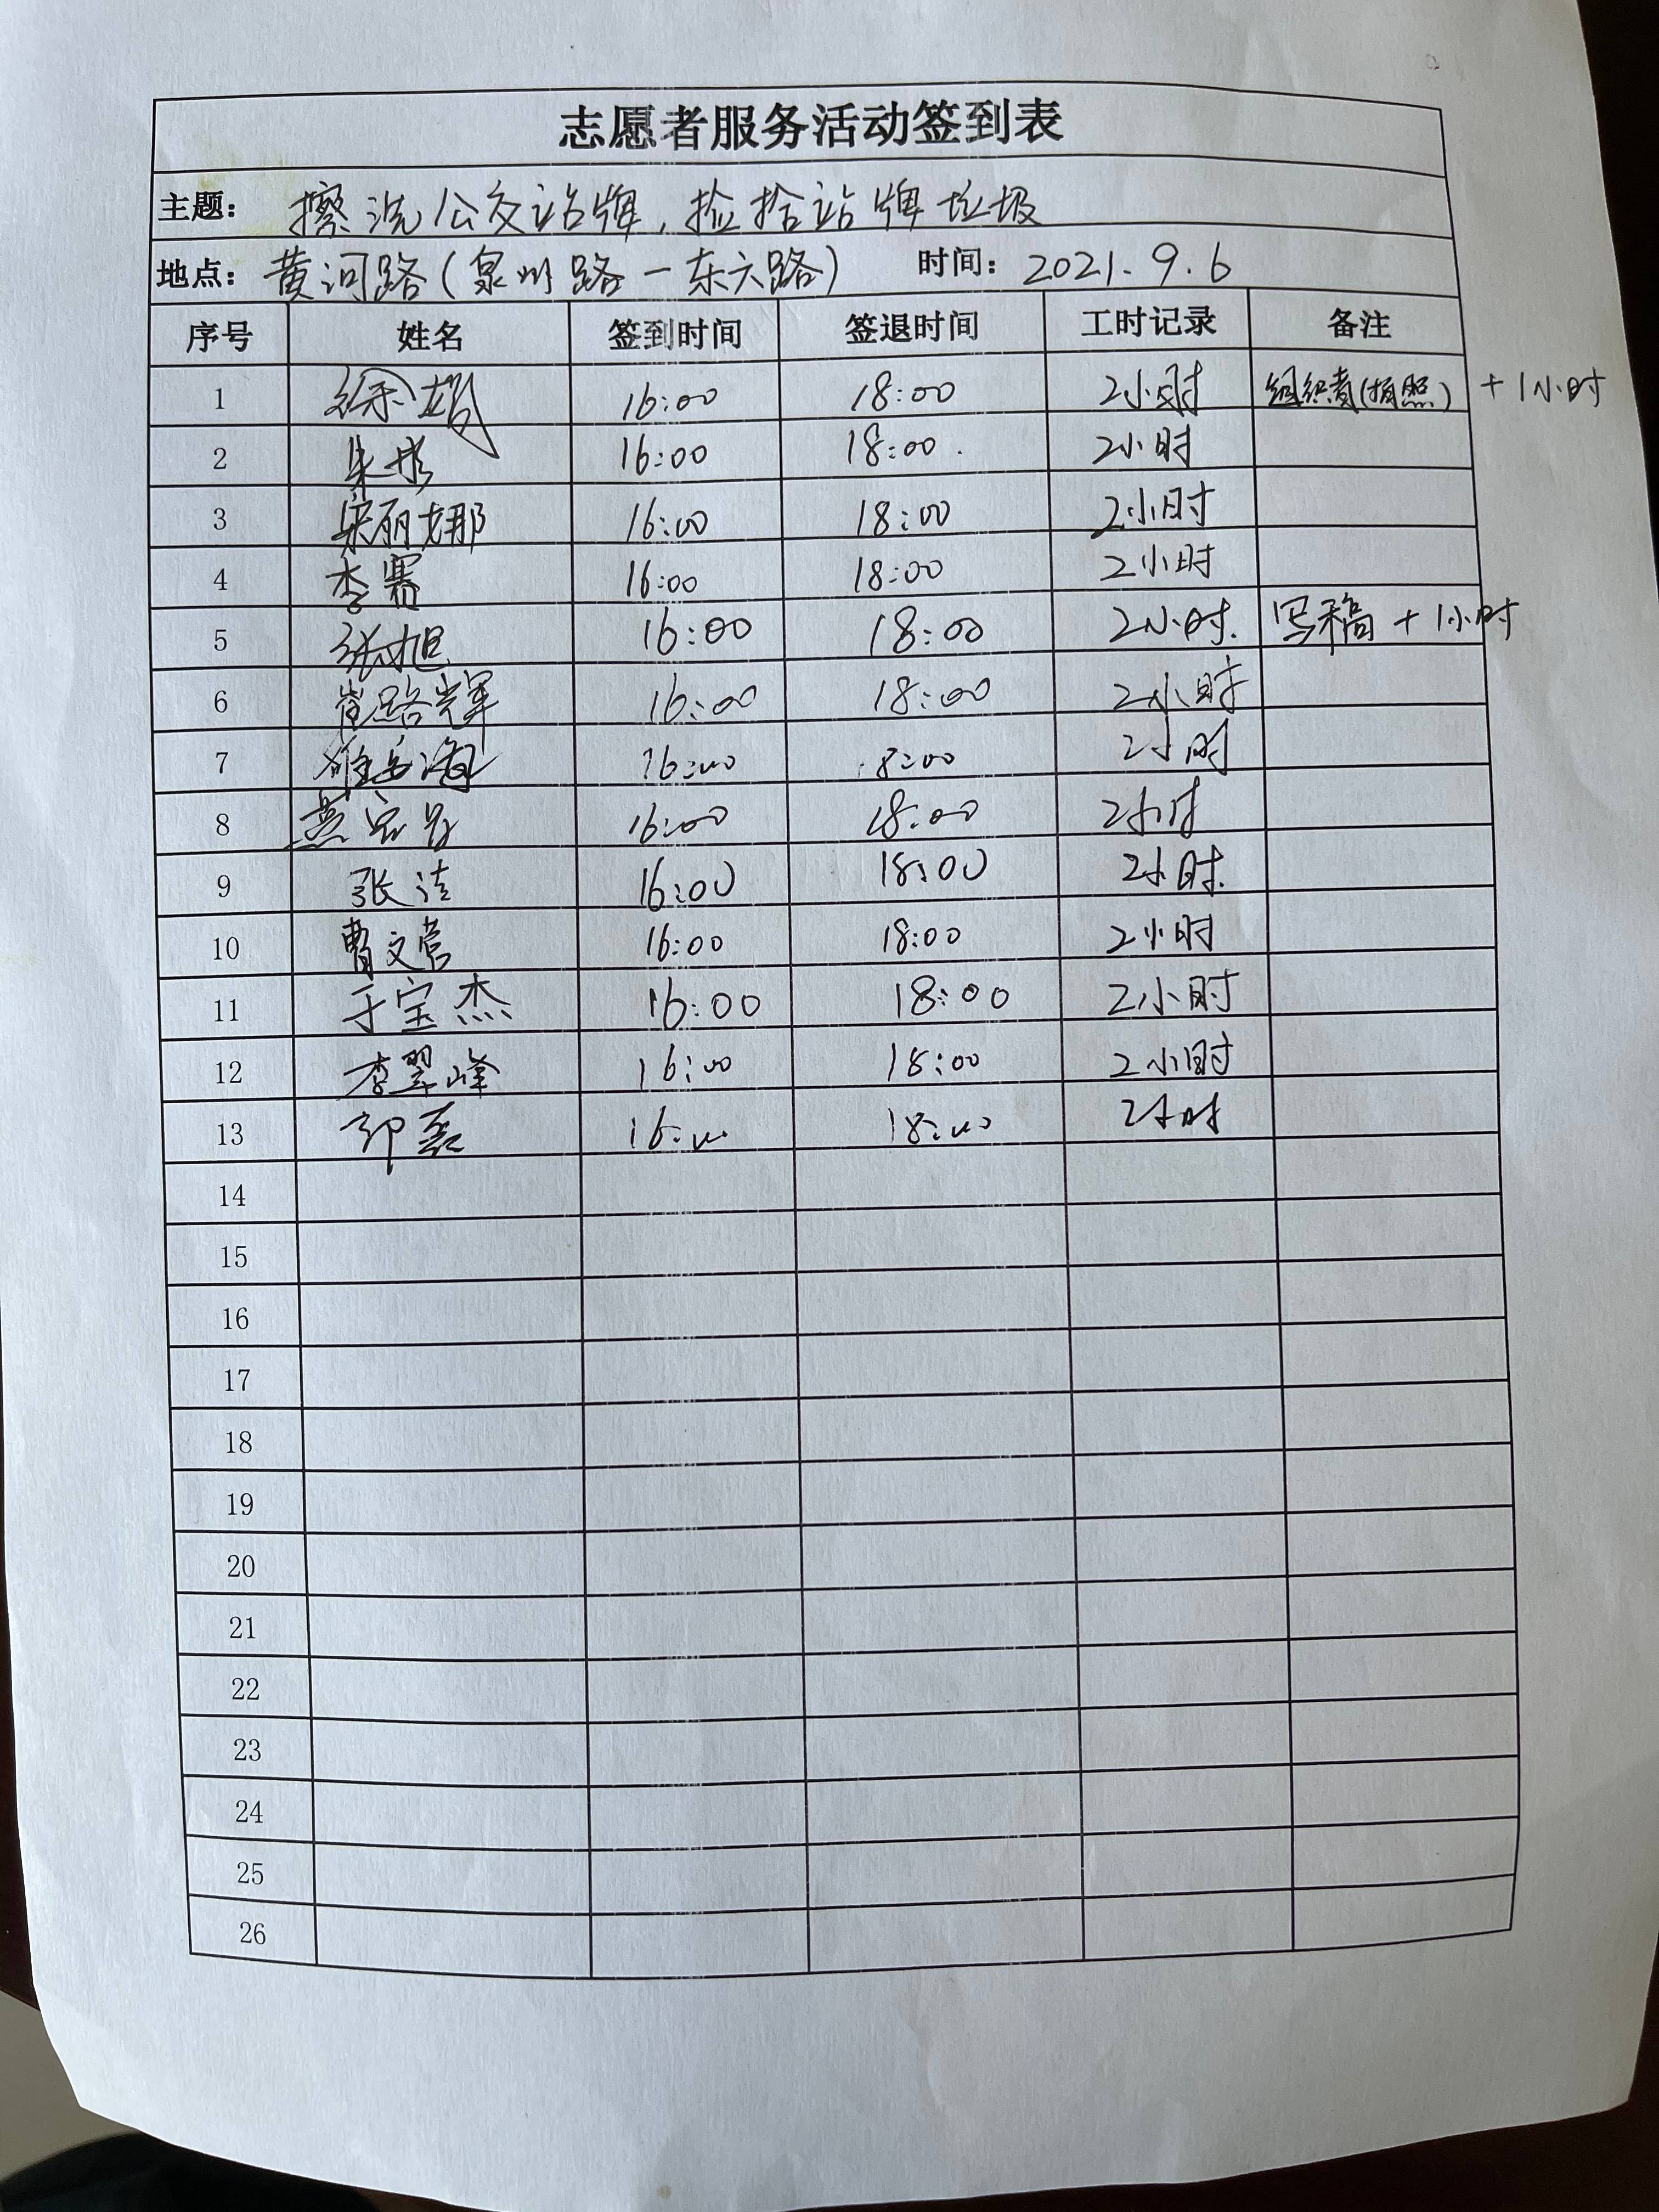 志愿者服务活动签到表
主题: 擦洗公交站牌, 捡拾站牌垃圾
地点: 黄河路(泉州路一东六路) 时间: 2021.9.6
序号 姓名 签到时间 签退时间 工时记录 备注
1 徐娟 16:00 18:00 2小时 组织者(拍照) +1小时
2 朱彬 16:00 18:00. 2小时
3 宋丽娜 16:00 18:00 2小时
4 李赛 16:00 18:00 2小时
5 张旭 16:00 18:00 2小时. 写稿 +1小时
6 崔路辉 16:00 18:00 2小时
7 16:00 18:00 2小时
8 16:00 18:00 2小时
9 张洁 16:00 18:00 2小时.
10 曹文营 16:00 18:00 2小时
11 于宝杰 16:00 18:00 2小时
12 李翠峰 16:00 18:00 2小时
13 邵磊 16:00 18:00 2小时
14
15
16
17
18
19
20
21
22
23
24
25
26